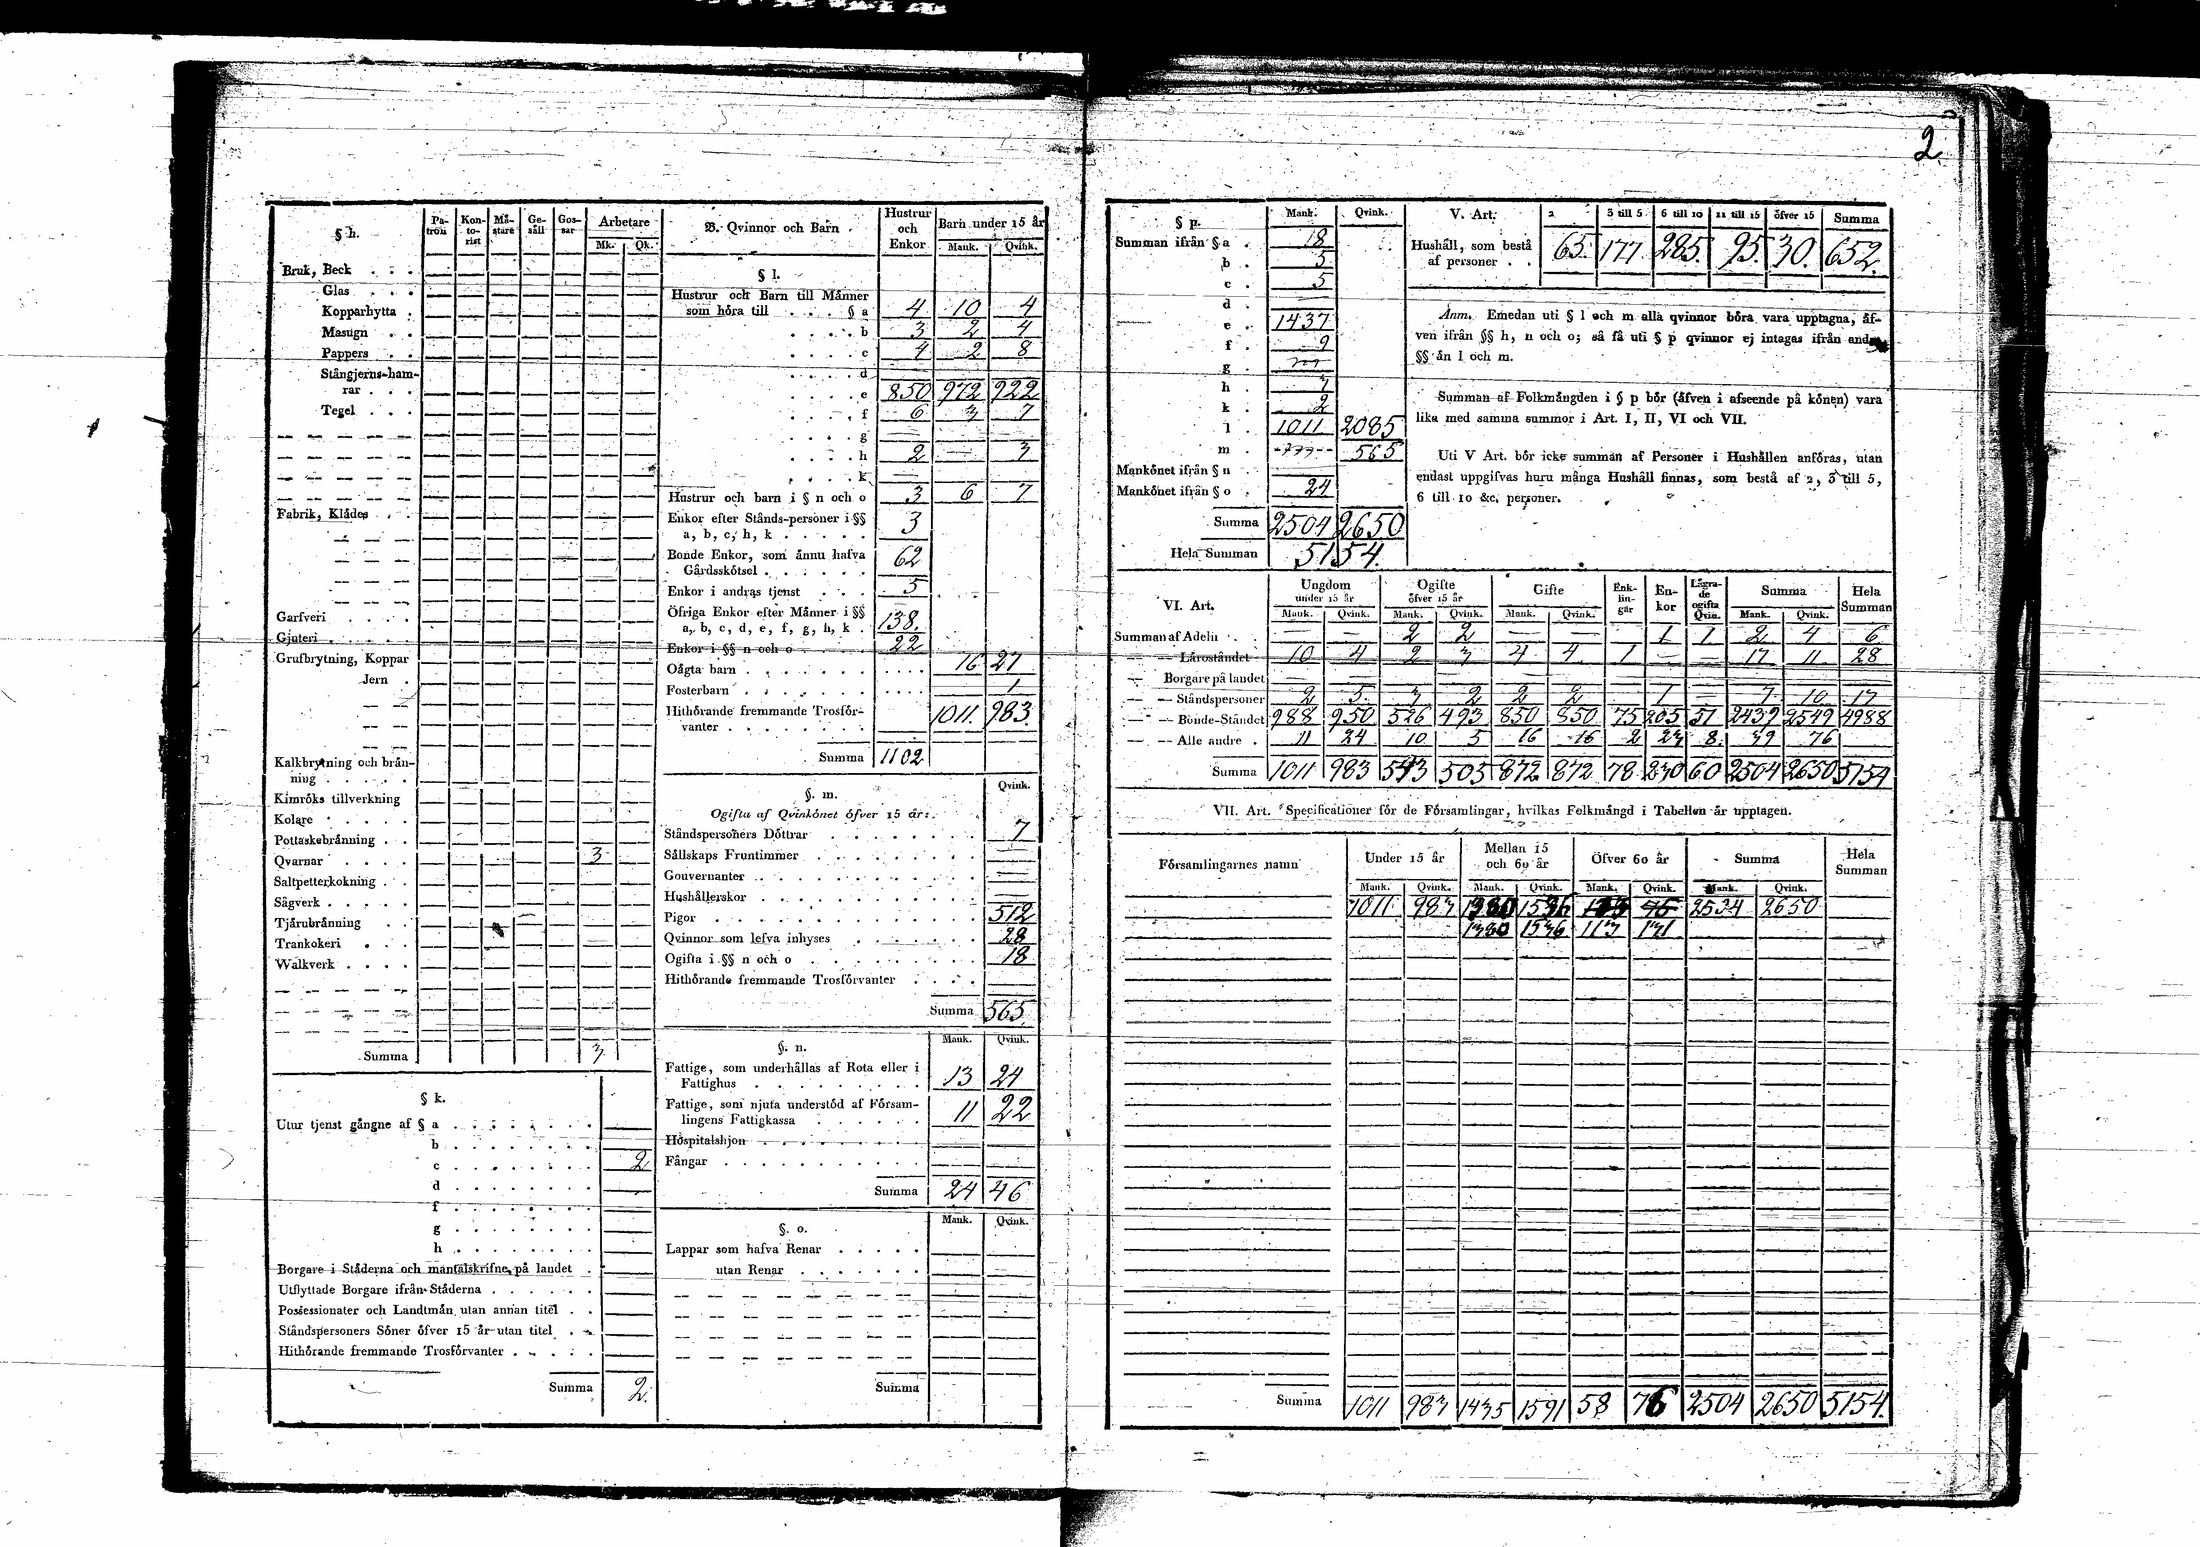 2.
§ h. Patron Kontorist Måstare Gesåll Gossar Arbetare Mk. Qk.
Bruk, Beck . . .
Glas . . .
Kopparhytta .
Masugn . .
Pappers . .
Stångjerns-hamrar . . .
Tegel . . .
Fabrik, Klådes . .
Garfveri . . . .
Gjuteri . . . .
Grufbrytning, Koppar
Jern .
Kalkbrytning och brånning . . . . .
Kimröks tillverkning
Kolare . . . .
Pottaskebrånning . .
Qvarnar . . . . 3
Saltpetterkokning . .
Sågverk . . . . .
Tjårubrånning . .
Trankokeri . . .
Walkverk . . . .
Summa 3
§ k.
Utur tjenst gångne af § a . . . . . . .
b . . . . . . .
c . . . . . . . 2
d . . . . . . .
f . . . . . . .
g . . . . . . .
h . . . . . . .
Borgare i Ståderna och mantalskrifne på landet .
Utflyttade Borgare ifrån Ståderna . . . . . .
Possessionater och Landtmån utan annan titel . .
Ståndspersoners Söner öfver 15 år utan titel . .
Hithörande fremmande Trosförvanter . . . . .
Summa 2.
B. Qvinnor och Barn Hustrur och Enkor Barn under 15 år Mank. Qvink.
§ l.
Hustrur och Barn till Månner
som höra till . . . § a 4 10 4
. . . . b 3 2 4
. . . . c 4 2 8
. . . . d
. . . . e 850 972 922
. . . . f 6 3 7
. . . . g
. . . . h 2 — 3
. . . . k
Hustrur och barn i § n och o 3 6 7
Enkor efter Stånds-personer i §§
a, b, c, h, k . . . . . 3
Bonde Enkor, som ånnu hafva
Gårdsskötsel . . . . . . 62
Enkor i andras tjenst . . . 5
Öfriga Enkor efter Månner i §§
a, b, c, d, e, f, g, h, k . 138.
Enkor i §§ n och o . . . . 22
Oågta barn . . . . . . . 16 27
Fosterbarn . . . . . . . 1
Hithörande fremmande Trosförvanter . . . . . . . 1011. 983.
Summa 1102
§. m. Qvink.
Ogifta af Qvinkönet öfver 15 år:
Ståndspersoners Döttrar . . . . . . . 7
Sållskaps Fruntimmer . . . . . . . .
Gouvernanter . . . . . . . . . .
Hushållerskor . . . . . . . . . .
Pigor . . . . . . . . . . . 512
Qvinnor som lefva inhyses . . . . . . . 28
Ogifta i §§ n och o . . . . . . . . 18
Hithörande fremmande Trosförvanter . . . .
Summa 565
§. n. Mank. Qvink.
Fattige, som underhållas af Rota eller i
Fattighus . . . . . . . . . 13 24
Fattige, som njuta understöd af Församlingens Fattigkassa . . . . . . 11 22
Hospitalshjon . . . . . . . .
Fångar . . . . . . . . . . .
Summa 24 46
§. o. Mank. Qvink.
Lappar som hafva Renar . . . . .
utan Renar . . . . . . .
Summa
§ p. Mank. Qvink.
Summan ifrån § a . 18
b . 5
c . 5
d .
e . 1437
f . 9
g .
h . 3
k . 2
l . 1011 2085
m . 565
Mankönet ifrån § n .
Mankönet ifrån § o . 24
Summa 2504 2650
Hela Summan 5154.
V. Art. 2 3 till 5 6 till 10 11 till 15 öfver 15 Summa
Hushåll, som bestå
af personer . . 65. 177. 285. 95. 30. 652.
Anm. Emedan uti § l och m alla qvinnor böra vara upptagna, åfven ifrån §§ h, n och o; så få uti § p qvinnor ej intagas ifrån andra
§§ ån l och m.
Summan af Folkmångden i § p bör (åfven i afseende på könen) vara
lika med samma summor i Art. I, II, VI och VII.
Uti V Art. bör icke summan af Personer i Hushållen anföras, utan
endast uppgifvas huru många Hushåll finnas, som bestå af 2, 3 till 5,
6 till 10 &c. personer.
VI. Art. Ungdom under 15 år Ogifte öfver 15 år Gifte Enklingar Enkor Lågrade ogifta Qvin. Summa Hela Summan
Mank. Qvink. Mank. Qvink. Mank. Qvink. Mank. Qvink.
Summan af Adeln . . — — 2 2 — — — 1 1 2 4 6
— — Låroståndet 10 4 2 3 4 4 1 — — 17 11 28
— Borgare på landet
— — Ståndspersoner 2 5 3 2 2 2 — 1 — 7 10 17
— — Bonde-Ståndet 988 950 526 493 850 850 75 205 51 2439 2549 4988
— — Alle andre . 11 24 10 5 16 16 2 23 8 39 76
Summa 1011 983 543 505 872 872 78 230 60 2504 2650 5154
VII. Art. Specificationer för de Församlingar, hvilkas Folkmångd i Tabellen år upptagen.
Församlingarnes namn Under 15 år Mellan 15 och 60 år Öfver 60 år Summa Hela Summan
Mank. Qvink. Mank. Qvink. Mank. Qvink. Mank. Qvink.
1011 983 1380 1536 2534 2650
1380 1536 113 131
Summa 1011 983 1435 1591 58 76 2504 2650 5154.